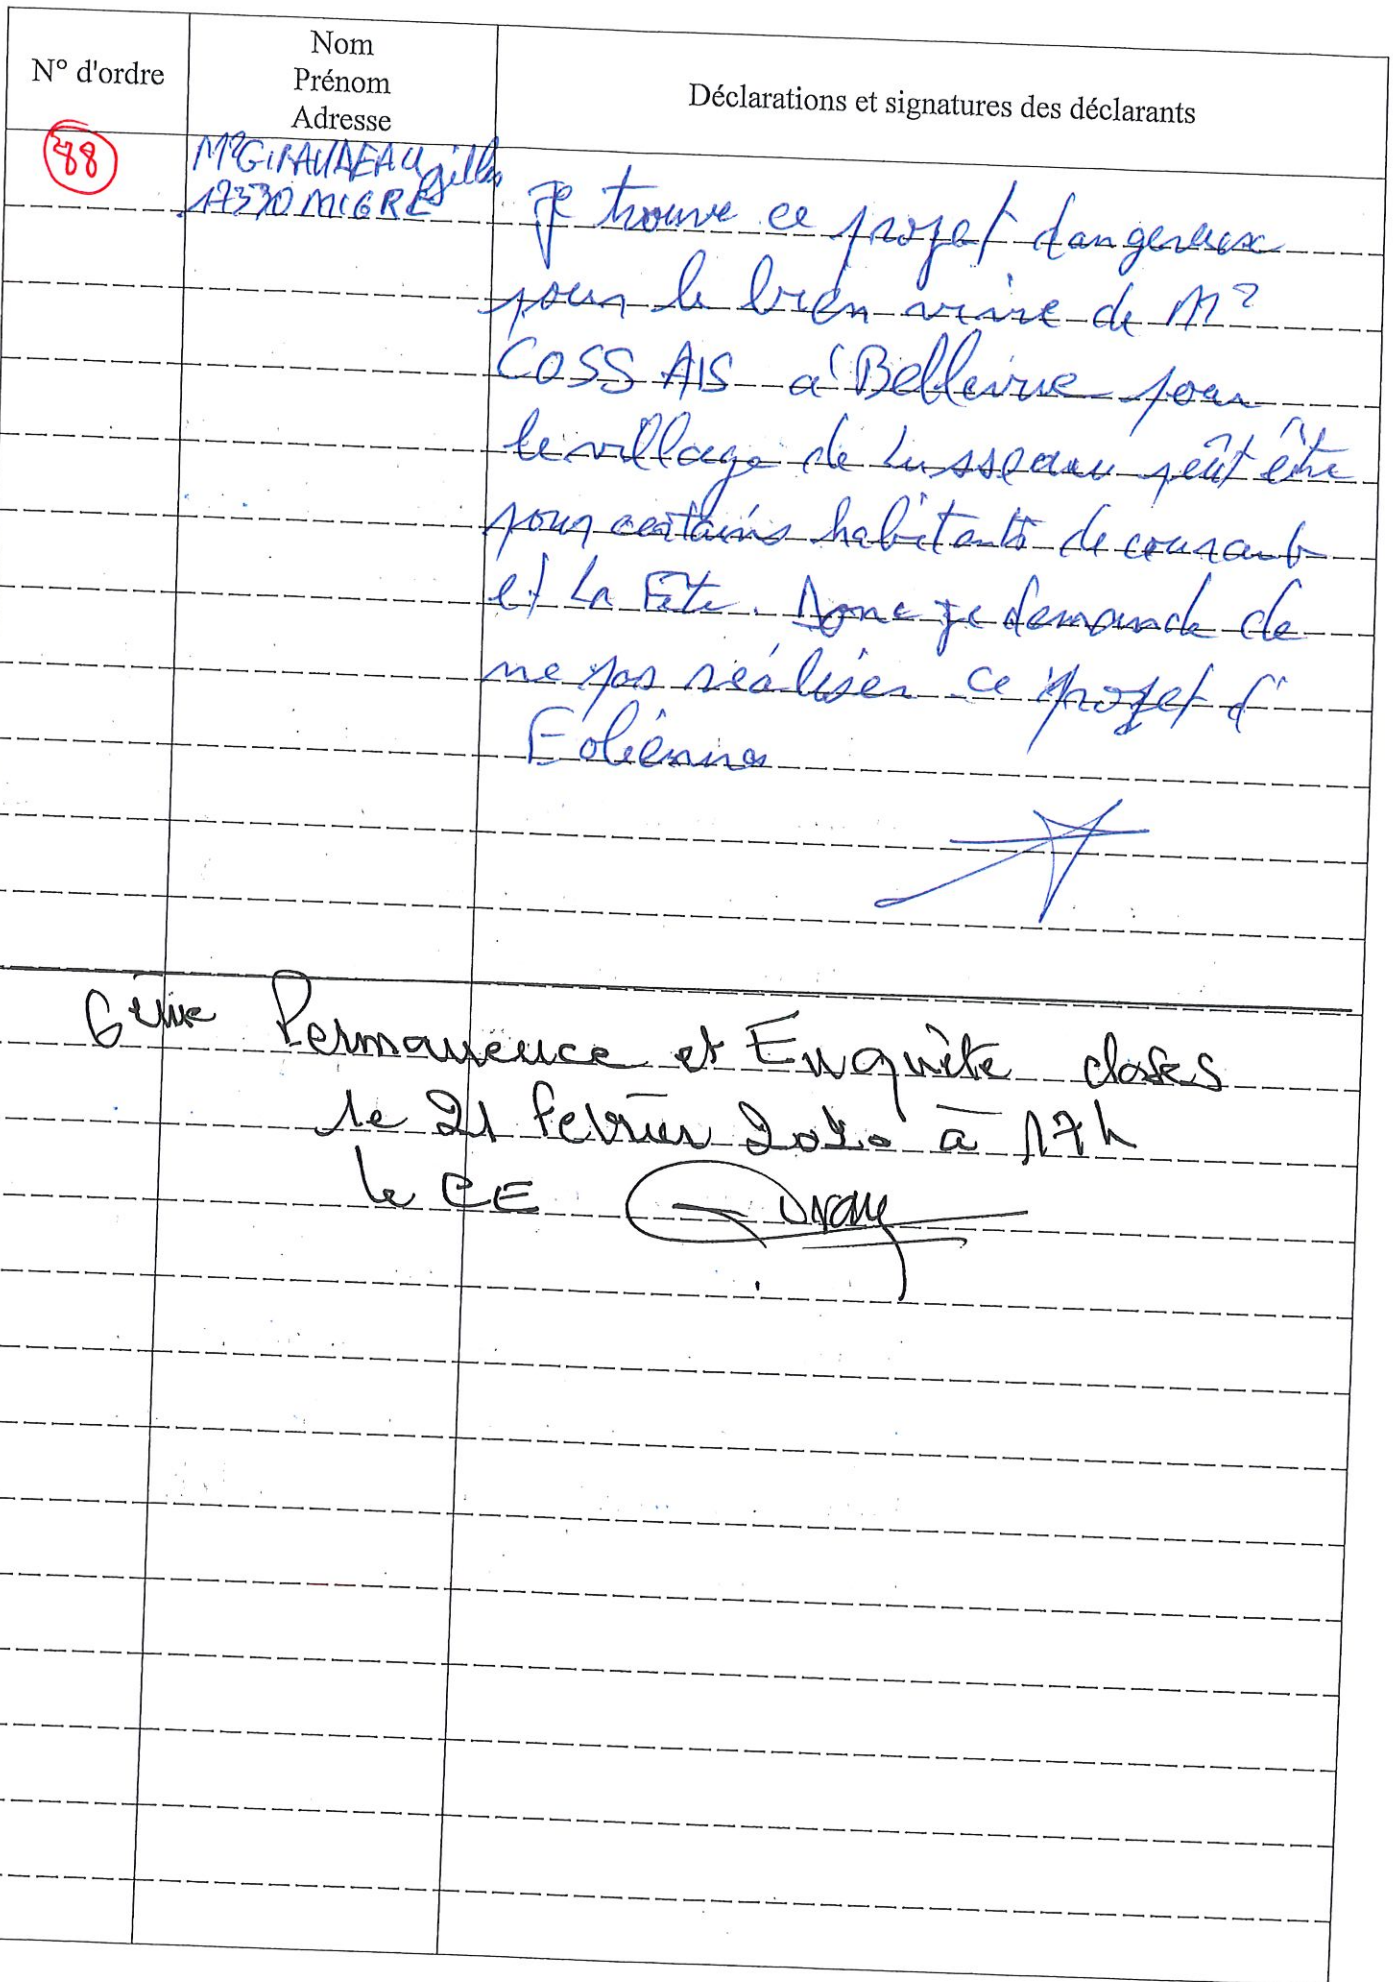 N° d'ordre
Nom
Prénom
Adresse
Déclarations et signatures des déclarants
88
Mr GIRAUDEAU gilles
17330 MIGRE
Je trouve ce projet dangereux
pour le bien vivre de Mr
COSSAIS a Bellevue pour
le village de Lusseau peût être
pour certains habitants de courant
et La Fête. Donc je demande de
ne pas réaliser ce projet d'
Eoliennes
6ème Permanence et Enquête closes
le 21 février 2020 à 17h
le CE